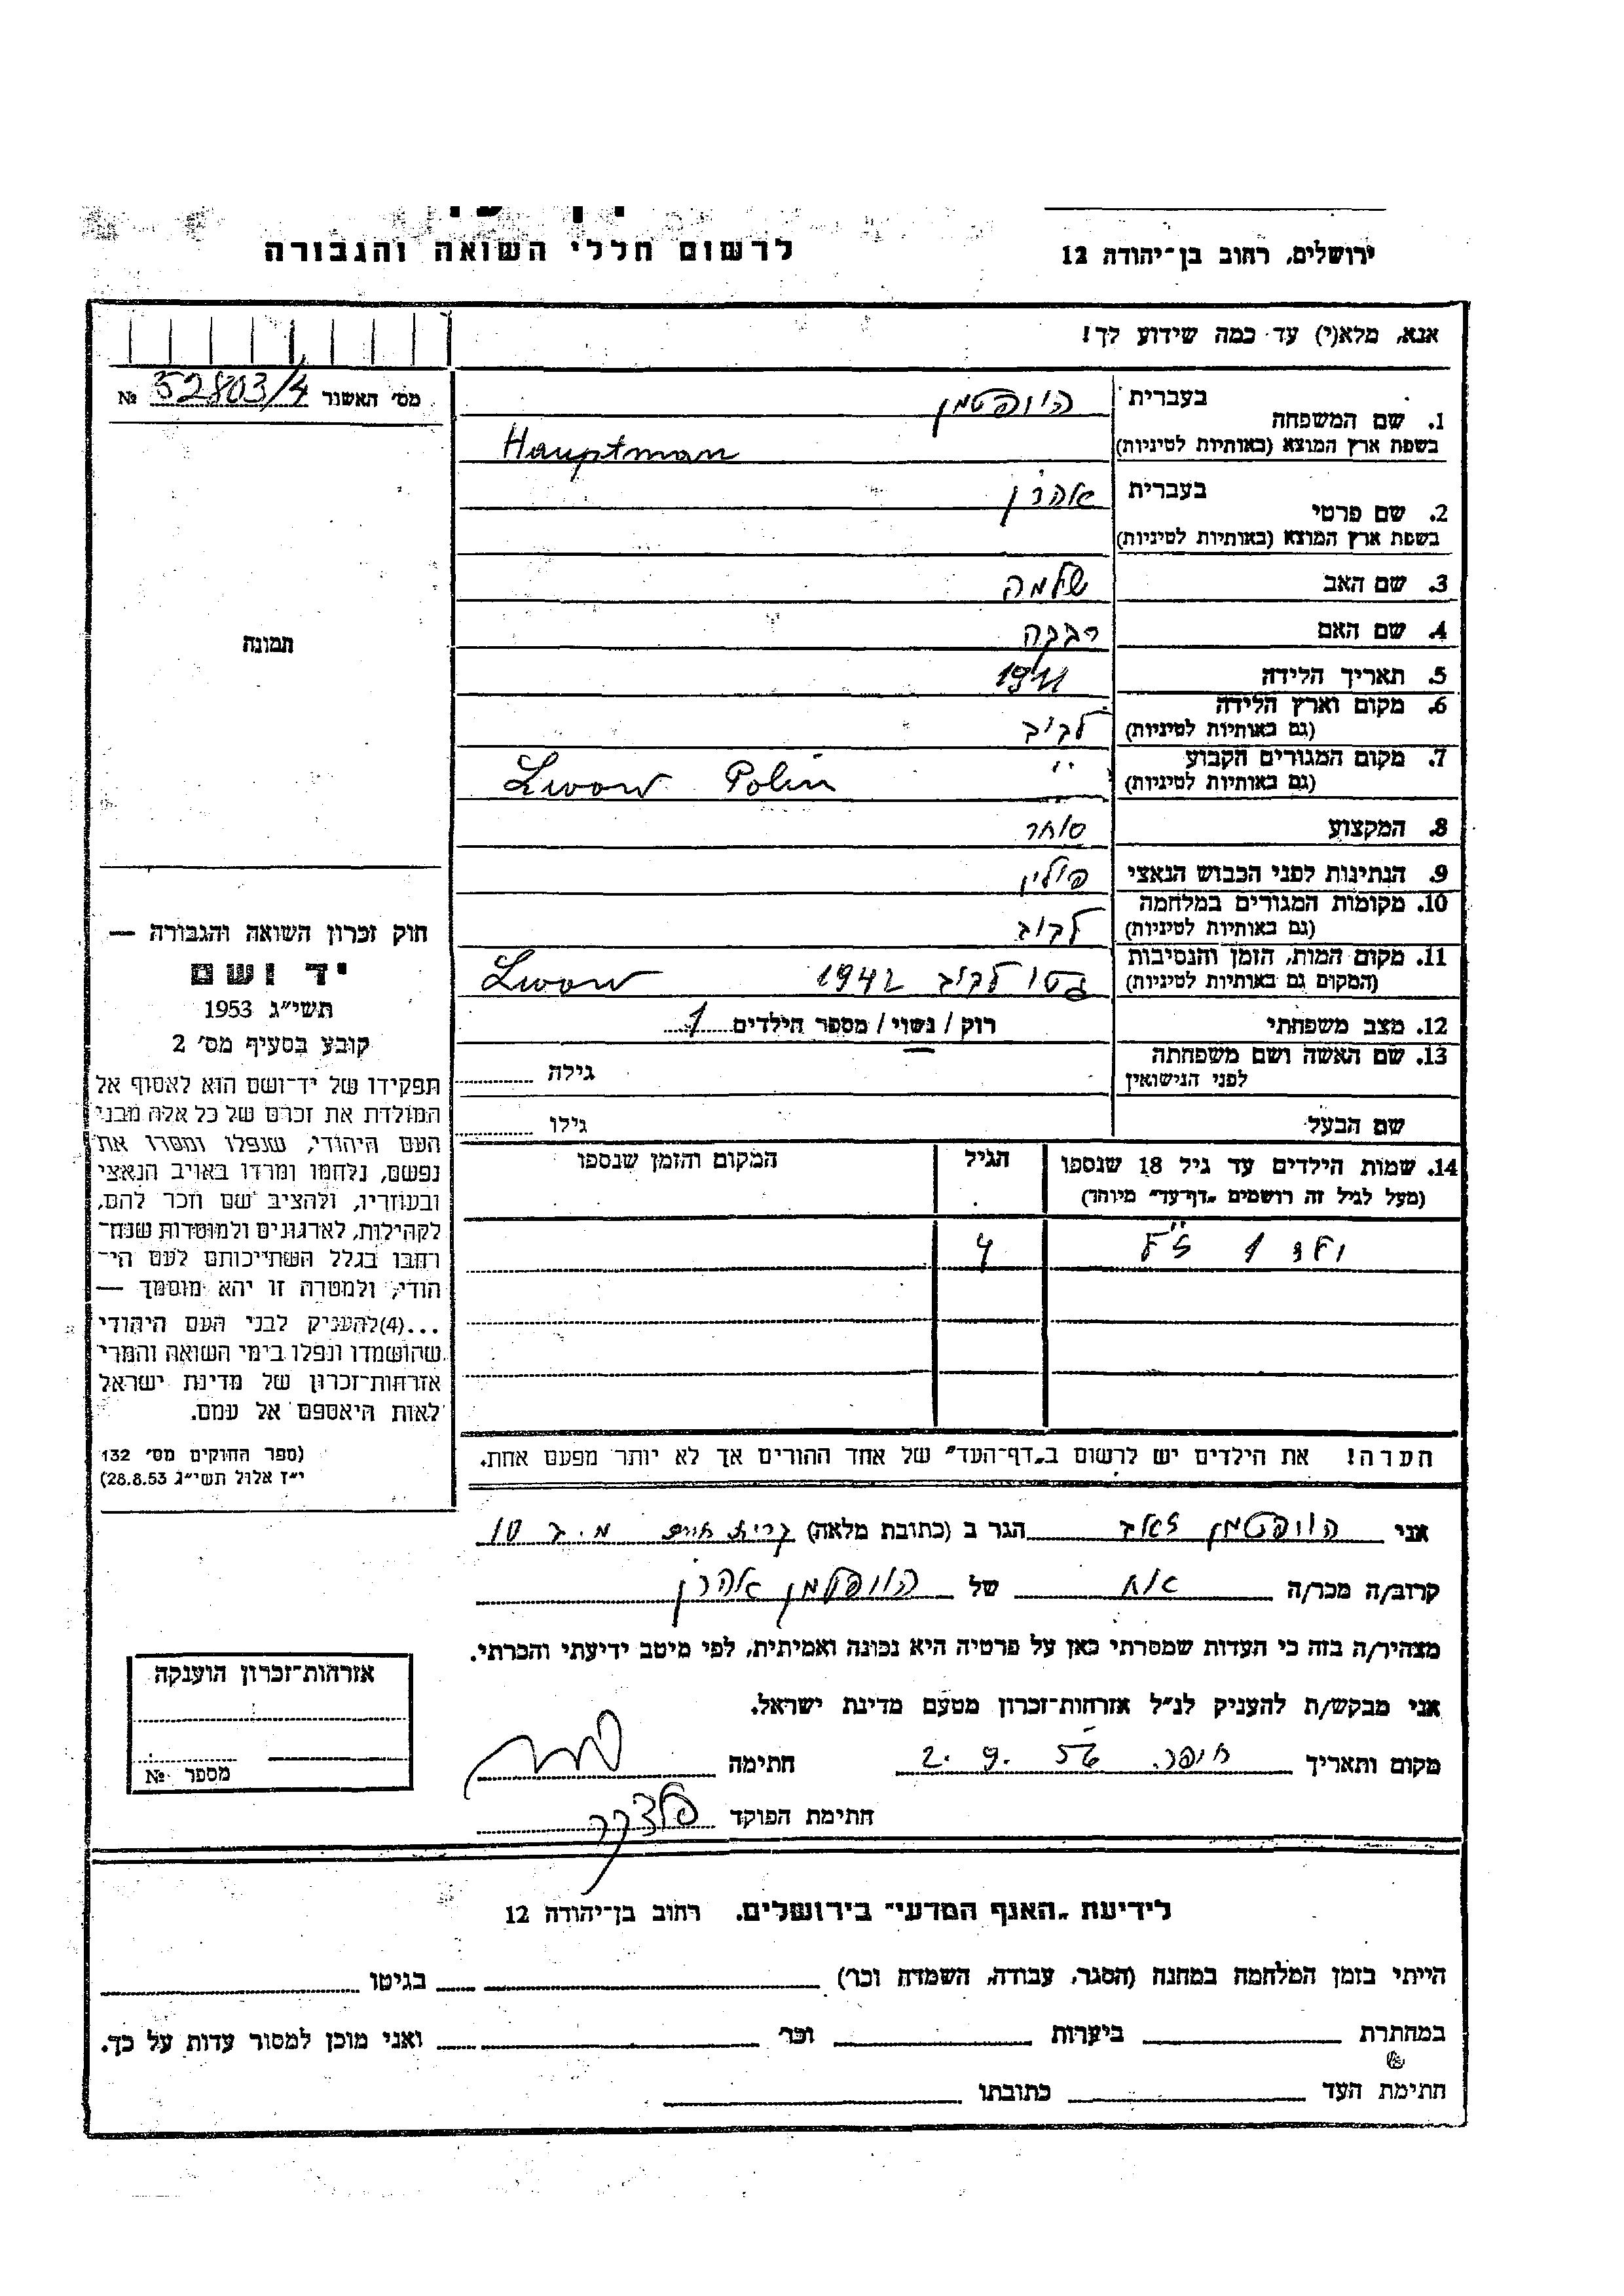 ירושלים, רחוב בן־יהודה 12
לרשום חללי השואה והגבורה
אנא, מלא(י) עד כמה שידוע לך!
מס' האשור 52803/4 №
1. שם המשפחה
בעברית הויפטמן
בשפת ארץ המוצא (באותיות לטיניות) Hauptman
2. שם פרטי
בעברית אהרן
בשפת ארץ המוצא (באותיות לטיניות)
3. שם האב שלמה
4. שם האם רבקה
5. תאריך הלידה
6. מקום וארץ הלידה לבוב
(גם באותיות לטיניות)
7. מקום המגורים הקבוע " Lwow Polin
(גם באותיות לטיניות)
8. המקצוע סוחר
9. הנתינות לפני הכבוש הנאצי פולין
10. מקומות המגורים במלחמה לבוב
(גם באותיות לטיניות)
11. מקום המות, הזמן והנסיבות גטו לבוב 1942 Lwow
(המקום גם באותיות לטיניות)
12. מצב משפחתי רוק / נשוי / מספר הילדים 1
13. שם האשה ושם משפחתה גילה
לפני הנישואין
שם הבעל גילו
14. שמות הילדים עד גיל 18 שנספו הגיל המקום והזמן שנספו
(מעל לגיל זה רושמים „דף־עד" מיוחד)
ילד 1 4
הערה! את הילדים יש לרשום ב„דף־העד" של אחד ההורים אך לא יותר מפעם אחת.
תמונה
חוק זכרון השואה והגבורה —
יד ושם
תשי״ג 1953
קובע בסעיף מס' 2
תפקידו של יד־ושם הוא לאסוף אל
המולדת את זכרם של כל אלה מבני
העם היהודי, שנפלו ומסרו את
נפשם, נלחמו ומרדו באויב הנאצי
ובעוזריו, ולהציב שם וזכר להם,
לקהילות, לארגונים ולמוסדות שנח־
רחבו בגלל השתייכותם לעם הי־
הודי, ולמטרה זו יהא מוסמך —
...(4)להעניק לבני העם היהודי
שהושמדו ונפלו בימי השואה והמרי
אזרחות־זכרון של מדינת ישראל
לאות היאספם אל עמם.
(ספר החוקים מס' 132
י״ז אלול תשי״ג 28.8.53)
אני הויפטמן זאב הגר ב (כתובת מלאה) קרית חיים 10
קרוב/ה מכר/ה אח של הויפטמן אהרן
מצהיר/ה בזה כי העדות שמסרתי כאן על פרטיה היא נכונה ואמיתית, לפי מיטב ידיעתי והכרתי.
אני מבקש/ת להעניק לנ״ל אזרחות־זכרון מטעם מדינת ישראל.
מקום ותאריך חיפה. 2. 9. 56 חתימה
חתימת הפוקד
אזרחות־זכרון הוענקה
מספר №
לידיעת „האגף המדעי" בירושלים. רחוב בן־יהודה 12
הייתי בזמן המלחמה במחנה (הסגר, עבודה, השמדה וכו') בגיטו
במחתרת ביערות וכו' ואני מוכן למסור עדות על כך.
חתימת העד כתובתו